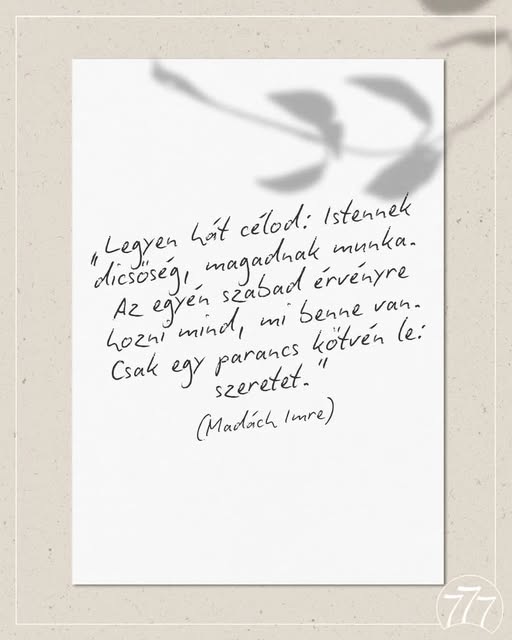 „Legyen hát célod: Istennek
dicsőség, magadnak munka.
Az egyén szabad érvényre
hozni mind, mi benne van.
Csak egy parancs kötvén le:
szeretet."
(Madách Imre)
777